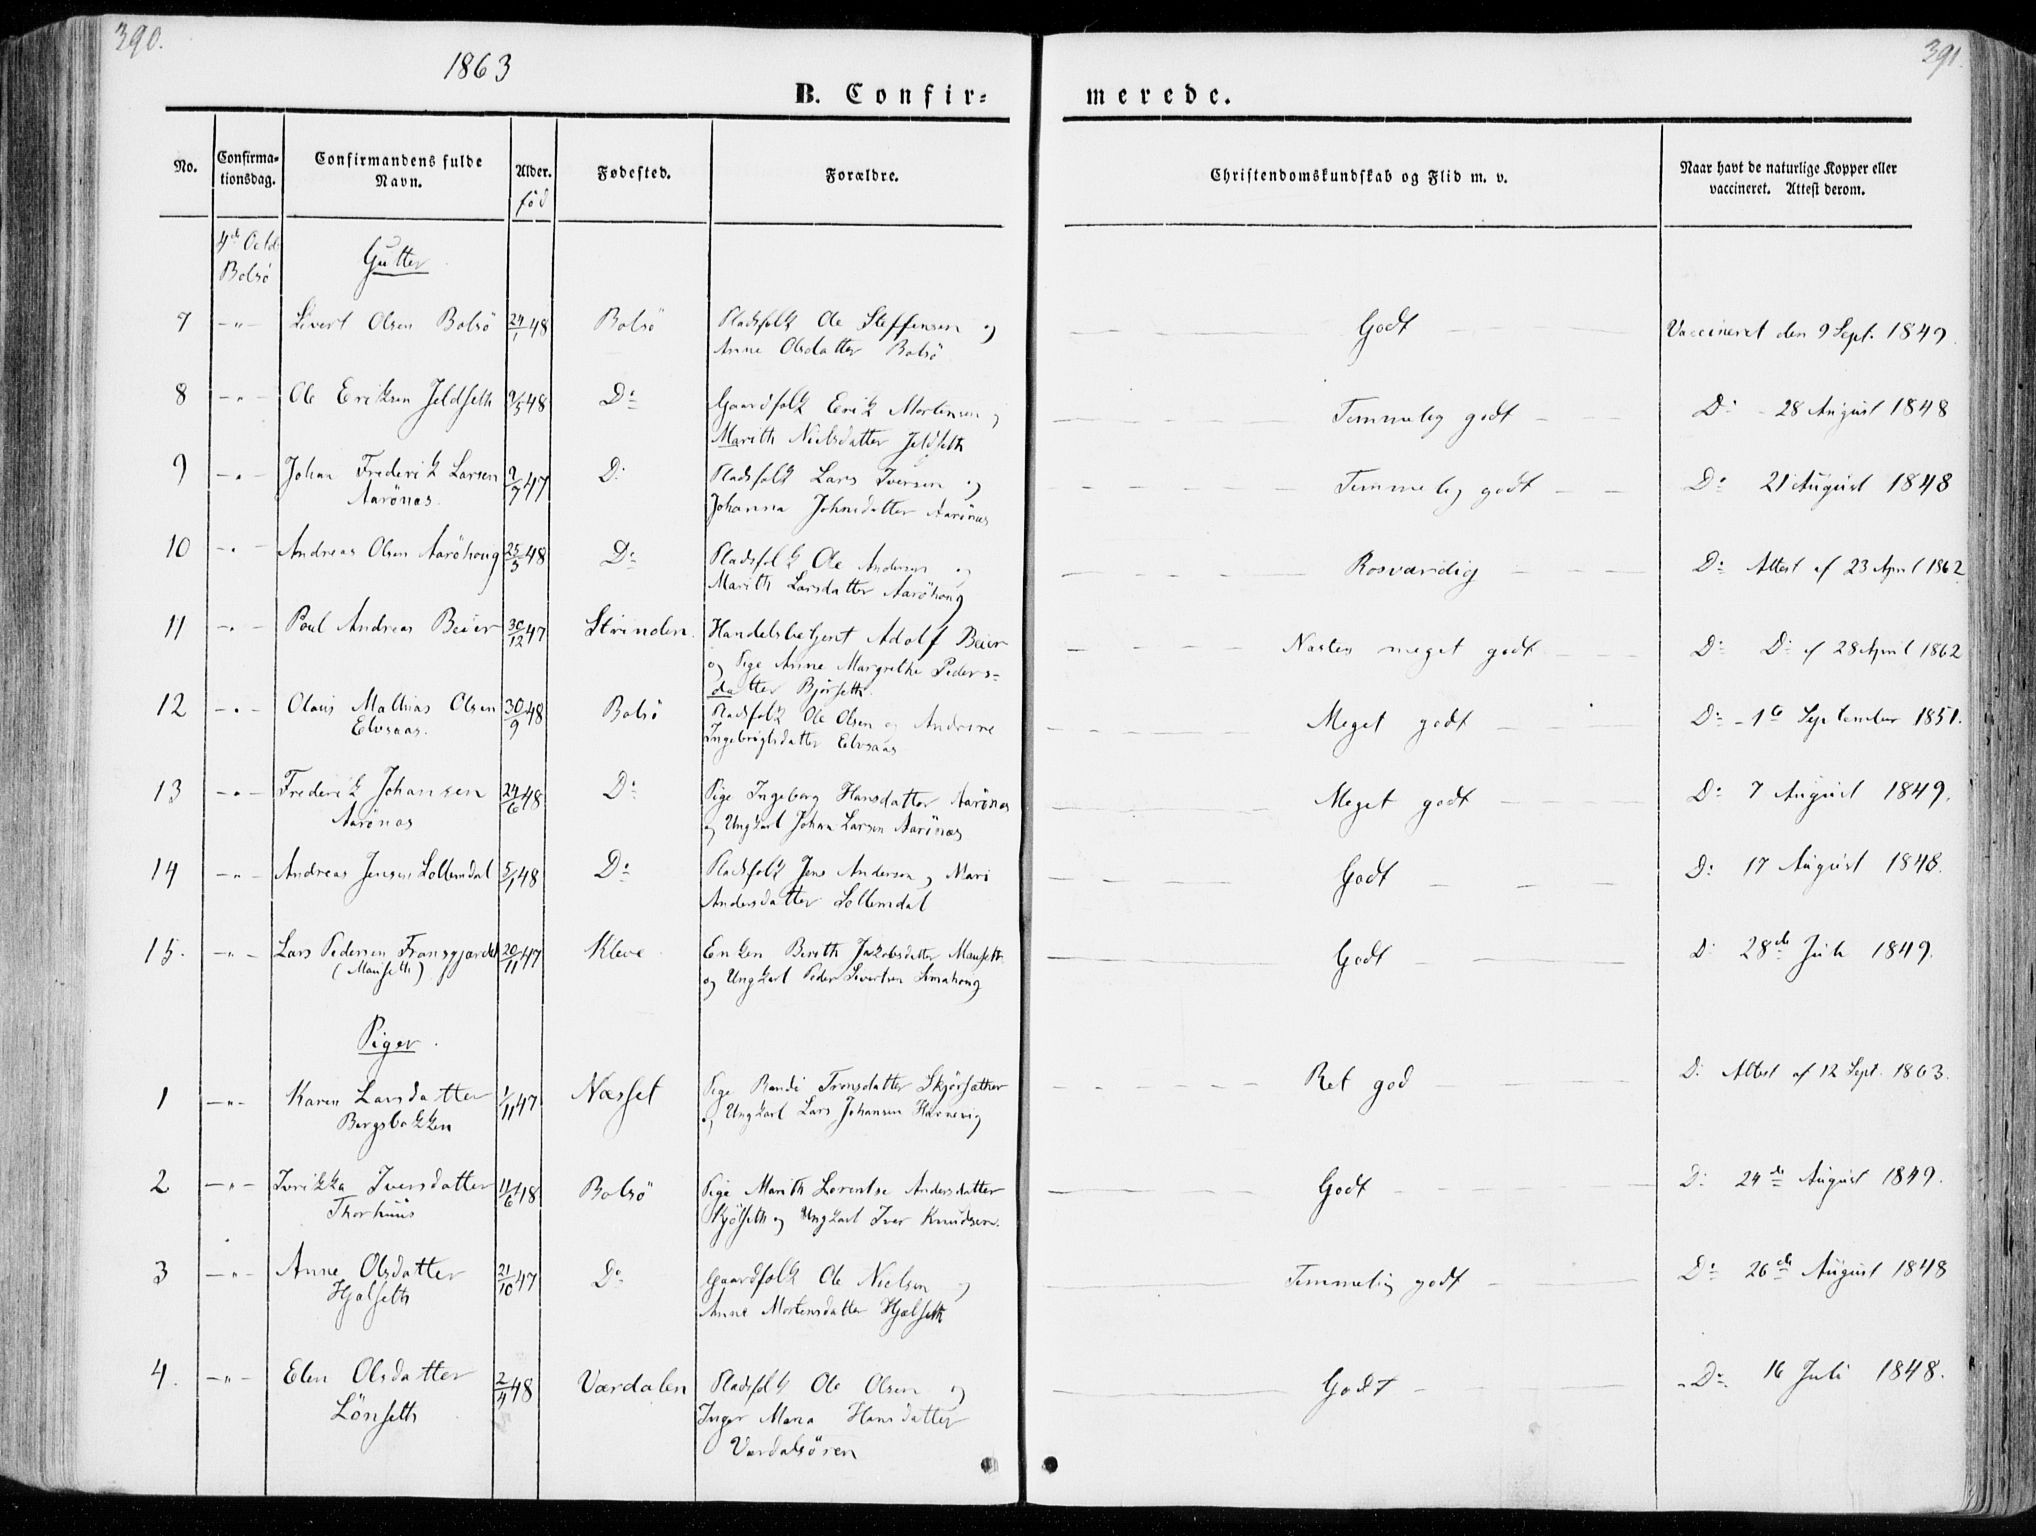 390.
391.
1863
B. Confir-
merede.
No.
Confirma-
tionsdag.
Confirmandens fulde
Navn.
Alder.
fød
Fødested.
Forældre.
Christendomskundskab og Flid m. v.
Naar havt de naturlige Kopper eller
vaccineret. Attest derom.
4de Octb
Bolsø
Gutter
7 -"- Sivert Olsen Bolsö 24/1 48 Bolsö Pladsfolk Ole Steffensen og
Anne Olsdatter Bolsö
Godt Vaccineret den 9 Sept. 1849.
8 -"- Ole Eriksen Jeldseth 9/5 48 Do Gaardfolk Erik Mortensen og
Marith Nielsdatter Jeldseth
Temmelig godt Do 28 August 1848
9 -"- Johan Frederik Larsen 2/7 47 Do Pladsfolk Lars Iversen og
Aarönæs. Johanna Johnsdatter Aarönæs
Temmelig godt Do 21 August 1848
10 -"- Andreas Olsen Aaröhoug 25/5 48 Do Pladsfolk Ole Andersen og
Marith Larsdatter Aaröhoug
Rosværdig Do Attest af 23 April 1862
11 -"- Poul Andreas Beier 30/12 47 Strinden. Handelsbetjent Adolf Beier
og Pige Anne Margrethe Peders-
datter Bjørseth.
Næsten meget godt Do Do af 28 April 1862
12 -"- Olaus Mathias Olsen 30/9 48 Bolsö Pladsfolk Ole Olsen og Andrine
Elvsaas. Ingebrigtsdatter Elvsaas
Meget godt Do - 1ste September 1851.
13 -"- Frederik Johansen 24/6 48 Do Pige Ingeborg Hansdatter Aarönæs
Aarönæs og Ungkarl Johan Larsen Aarönæs
Meget godt Do 7 August 1849.
14 -"- Andreas Jensen Sollemdal 5/1 48 Do Pladsfolk Jens Andersen og Mari
Andersdatter Sollemdal
Godt Do 17 August 1848.
15. -"- Lars Pedersen Fransgjærdet 20/11 47 Kleve Enken Berith Jakobsdatter Mauseth
(Mauseth) og Ungkarl Peder Sivertsen
Godt Do 28de Juli 1849.
Piger.
1 -"- Karen Larsdatter 1/11 47 Næsset Pige Randi Tronsdatter Skjörsæther
Bergsbakken og Ungkarl Lars Johansen Havnevig
Ret god Do Attest af 12 Sept. 1863.
2 -"- Iverikka Iversdatter 11/6 48 Bolsö Pige Marith Lorentse Andersdatter
Thorhuus Kjölseth og Ungkarl Iver Knudsen.
Godt Do 24de August 1849.
3 -"- Anne Olsdatter 21/10 47 Do Gaardfolk Ole Nielsen og
Hjelseth Anne Mortensdatter Hjelseth
Temmelig godt Do 26de August 1848
4. -"- Elen Olsdatter 2/4 48 Værdalen Pladsfolk Ole Olsen og
Lönseth Inger Maria Hansdatter
Værdalsören
Godt Do 16 Juli 1848.